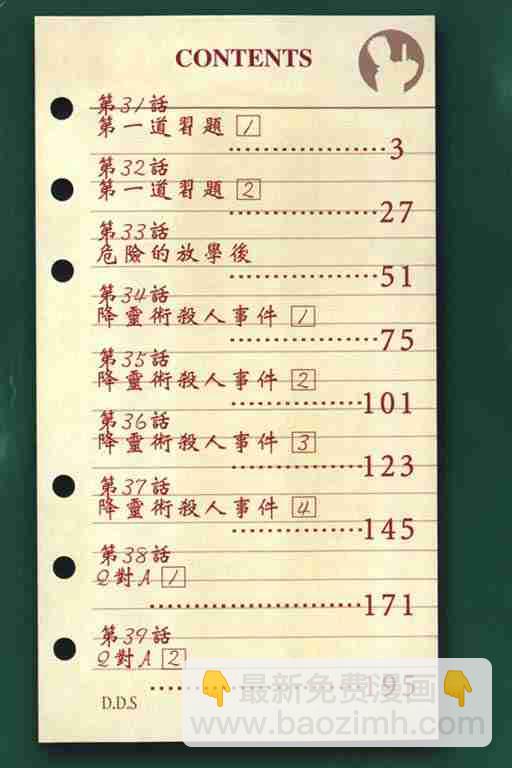 CONTENTS
第31話
第一道習題 1
3
第32話
第一道習題 2
27
第33話
危險的放學後
51
第34話
降靈術殺人事件 1
75
第35話
降靈術殺人事件 2
101
第36話
降靈術殺人事件 3
123
第37話
降靈術殺人事件 4
145
第38話
Q對A 1
171
第39話
Q對A 2
195
D.D.S
👇最新免费漫画👇
www.baozimh.com